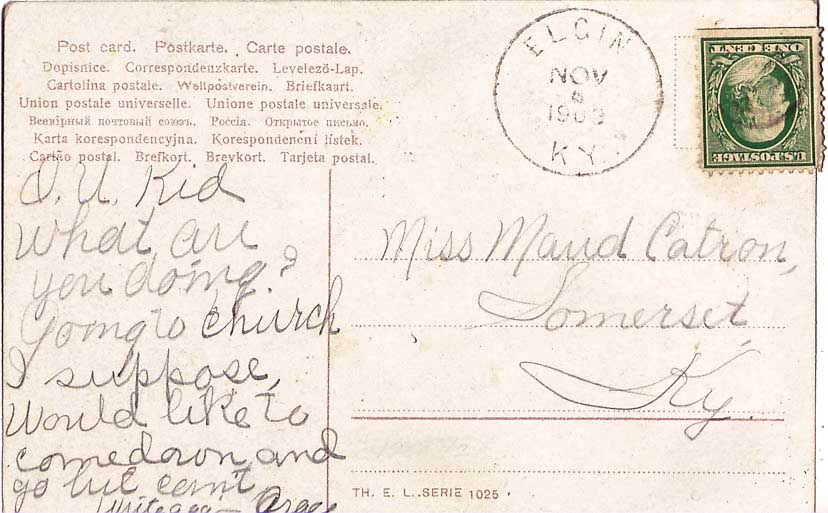 Post card. Postkarte. Carte postale.
Dopisnice. Correspondenzkarte. Levelező-Lap.
Cartolina postale. Weltpostverein. Briefkaart.
Union postale universelle. Unione postale universale.
Всемірный почтовый союзъ. Россія. Открытое письмо.
Karta korespondencyjna. Korespondenční lístek.
Cartão postal. Brefkort. Brevkort. Tarjeta postal.
ELGIN
NOV
6
1909
KY.
ONE CENT
U.S. POSTAGE
O. U. Kid
What are
you doing?
Going to church
I suppose,
Would like to
come down and
go but can't,
Miss Maud Catron,
Somerset,
Ky.
TH. E. L. SERIE 1025